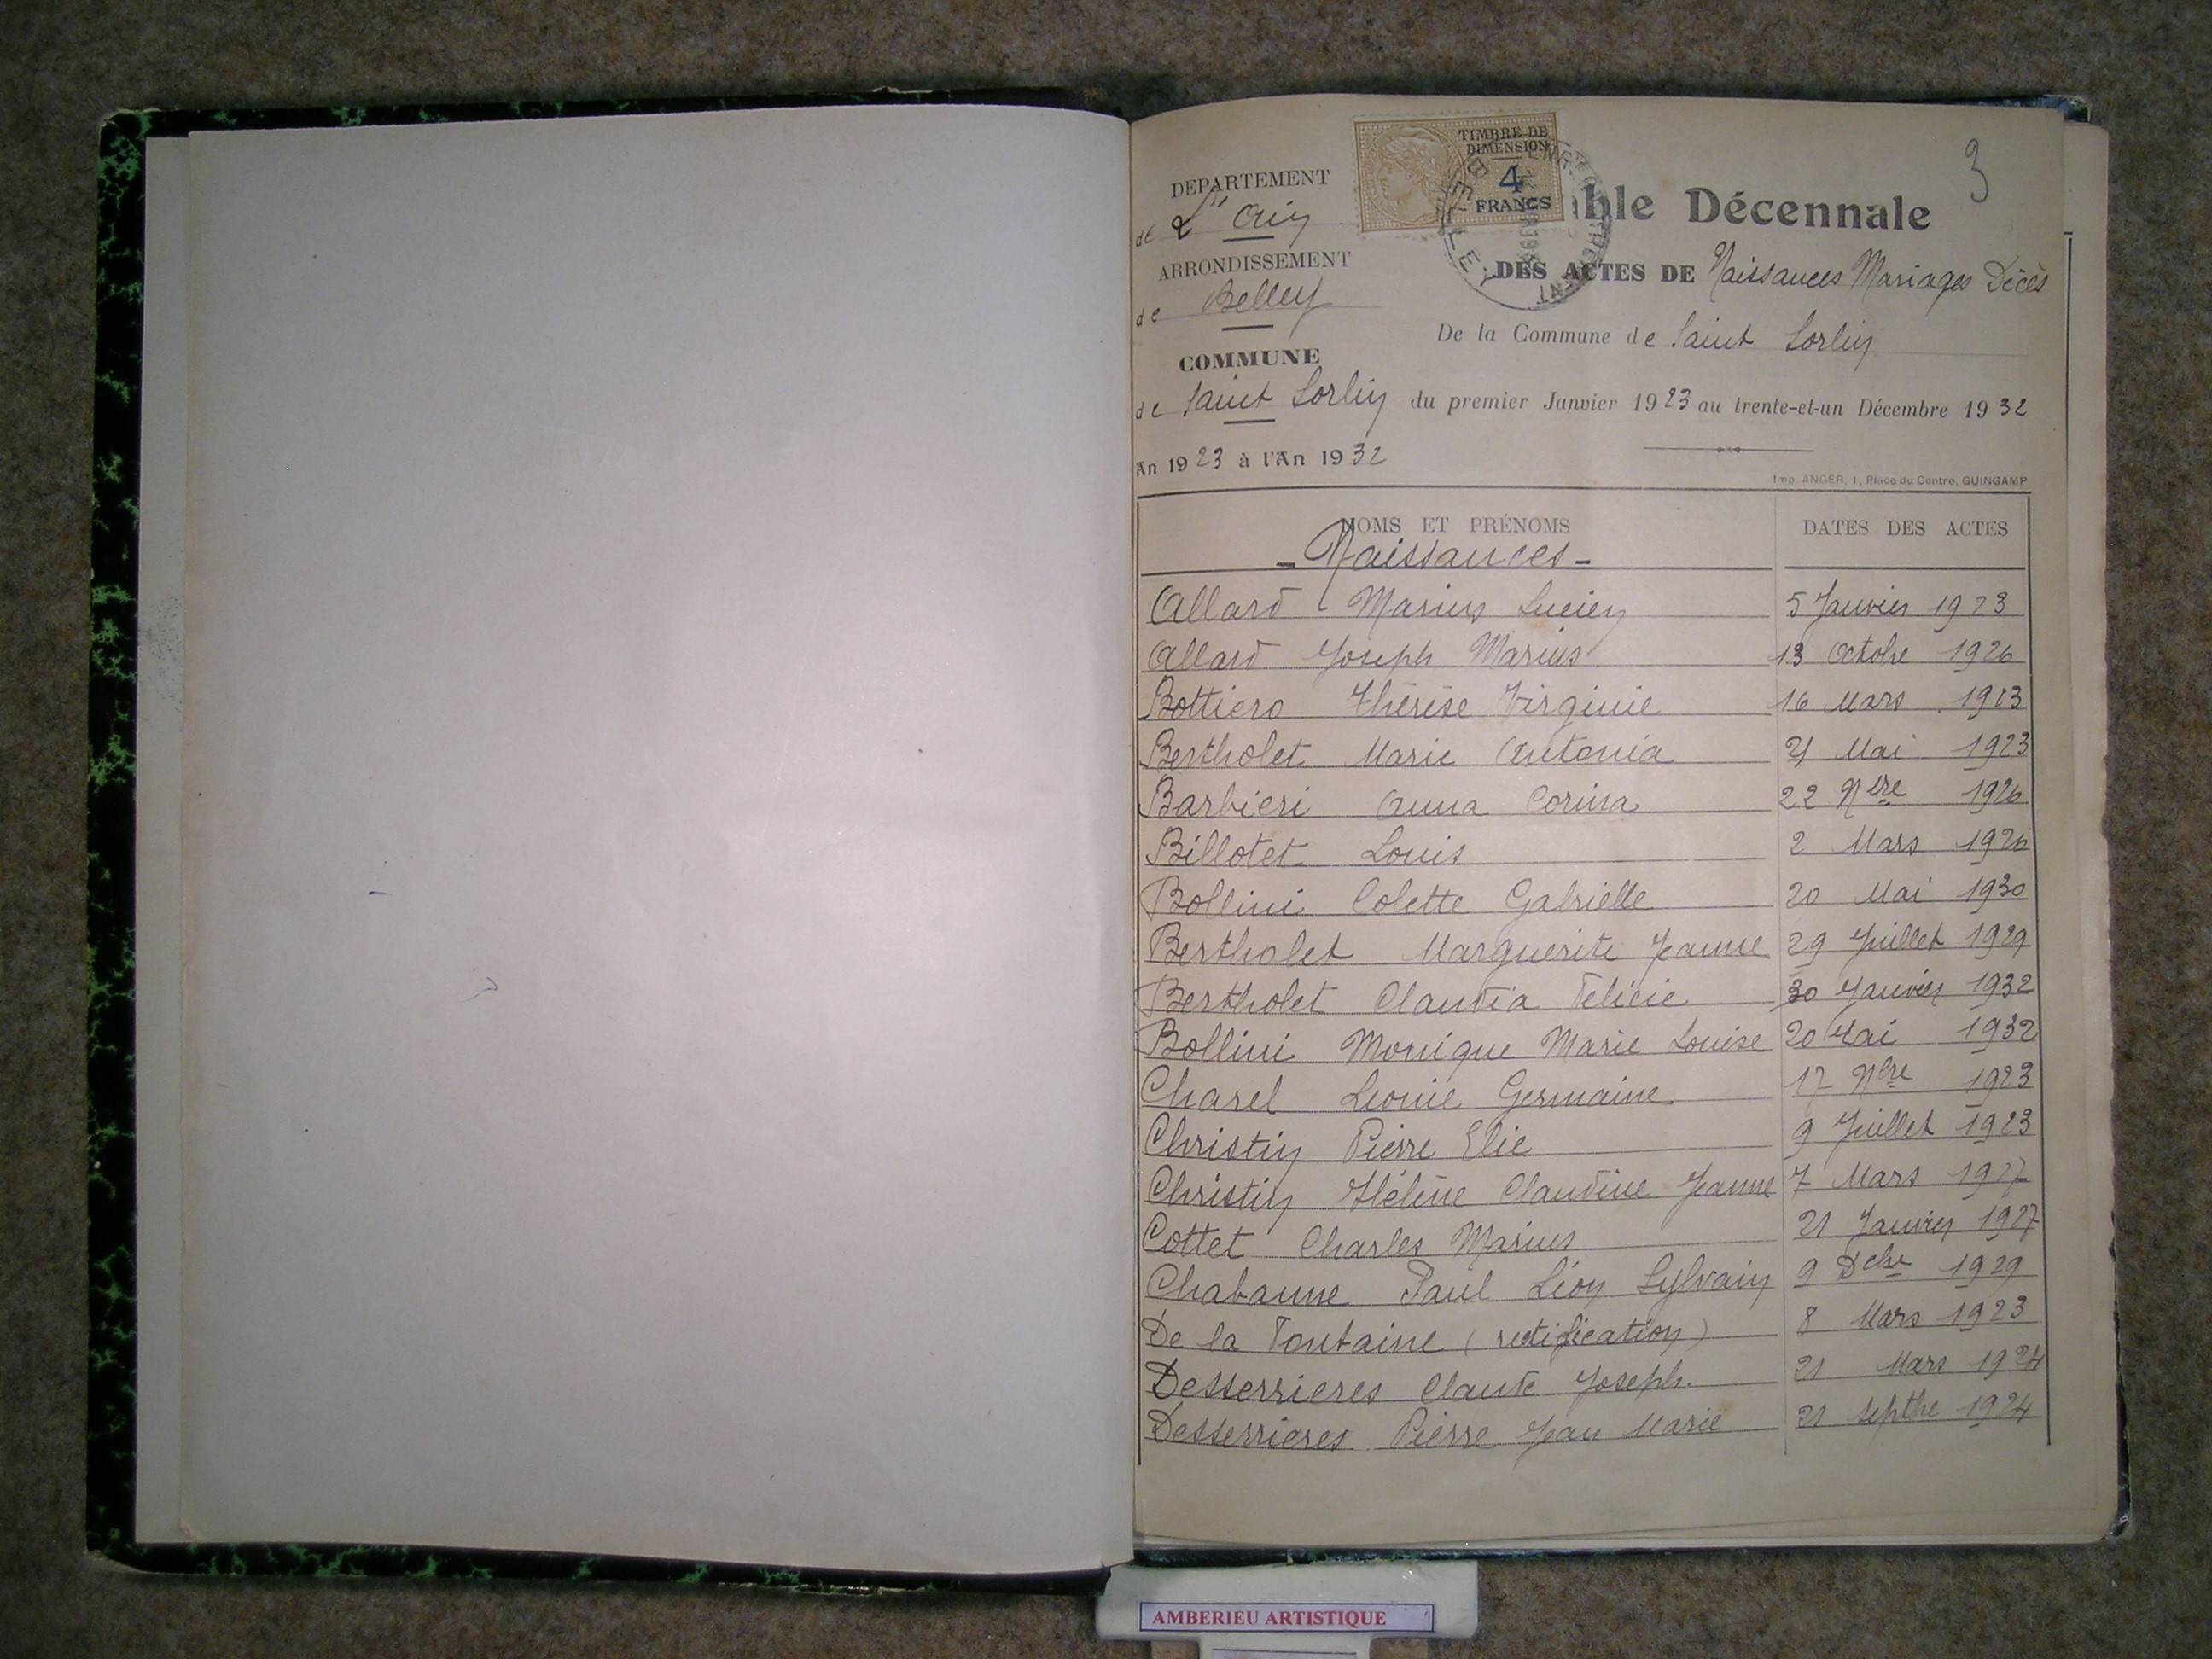 3
TIMBRE DE
DIMENSION
4
FRANCS
BELLEY
able Décennale
DES ACTES DE Naissances Mariages Décès
De la Commune de Saint Sorlin
du premier Janvier 1923 au trente-et-un Décembre 1932
DEPARTEMENT
de L'Ain
ARRONDISSEMENT
de Belley
COMMUNE
de Saint Sorlin
An 1923 à l'An 1932
Imp. ANGER, 1, Place du Centre, GUINGAMP
NOMS ET PRÉNOMS DATES DES ACTES
- Naissances -
Allard Marius Lucien 5 Janvier 1923
Allard Joseph Marius 13 Octobre 1926
Bottiero Thérèse Virginie 16 Mars 1923
Bertholet Marie Antonia 21 Mai 1923
Barbieri Anna Corina 22 Nbre 1926
Billotet Louis 2 Mars 1926
Bollini Colette Gabrielle 20 Mai 1930
Bertholet Marguerite Jeanne 29 Juillet 1929
Bertholet Claudia Félicie 30 Janvier 1932
Bollini Monique Marie Louise 20 Mai 1932
Charel Leonie Germaine 17 Nbre 1923
Christin Pierre Elie 9 Juillet 1923
Christin Hélène Claudine Jeanne 7 Mars 1927
Cottet Charles Marius 21 Janvier 1927
Chabanne Paul Léon Sylvain 9 Dcbre 1929
De la Fontaine (rectification) 8 Mars 1923
Desserrieres Claude Joseph. 21 Mars 1924
Desserrieres Pierre Jean Marie 21 Septbre 1924
AMBERIEU ARTISTIQUE